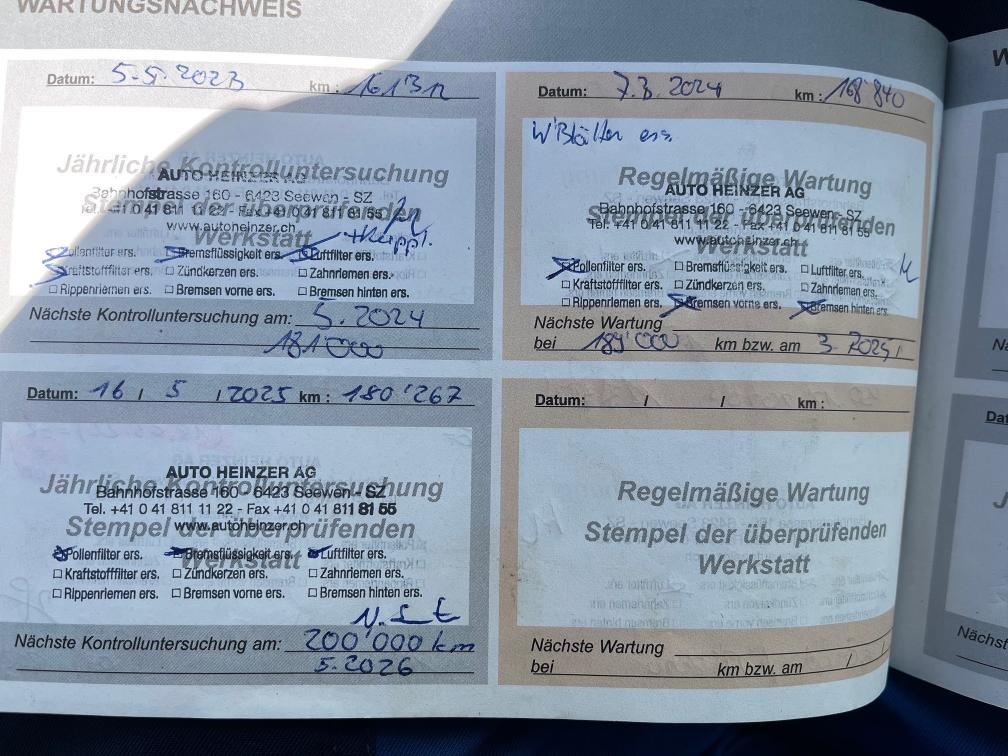 WARTUNGSNACHWEIS
Datum: 5.5.2023 km: 161'312
Jährliche Kontrolluntersuchung
AUTO HEINZER AG
Bahnhofstrasse 160 - 6423 Seewen - SZ
Stempel der überprüfenden
Tel. +41 0 41 811 11 22 - Fax +41 0 41 811 81 55
www.autoheinzer.ch
Werkstatt
Pollenfilter ers. Bremsflüssigkeit ers. Luftfilter ers.
Kraftstofffilter ers. Zündkerzen ers. Zahnriemen ers.
Rippenriemen ers. Bremsen vorne ers. Bremsen hinten ers.
Nächste Kontrolluntersuchung am: 5.2024
181'000
Datum: 7.3.2024 km: 168'840
W'Blätter ers.
Regelmäßige Wartung
AUTO HEINZER AG
Bahnhofstrasse 160 - 6423 Seewen - SZ
Stempel der überprüfenden
Tel. +41 0 41 811 11 22 - Fax +41 0 41 811 81 55
www.autoheinzer.ch
Werkstatt
Pollenfilter ers. Bremsflüssigkeit ers. Luftfilter ers.
Kraftstofffilter ers. Zündkerzen ers. Zahnriemen ers.
Rippenriemen ers. Bremsen vorne ers. Bremsen hinten ers.
Nächste Wartung
bei 189'000 km bzw. am 3.2025
Datum: 16 / 5 / 2025 km: 180'267
AUTO HEINZER AG
Jährliche Kontrolluntersuchung
Bahnhofstrasse 160 - 6423 Seewen - SZ
Tel. +41 0 41 811 11 22 - Fax +41 0 41 811 81 55
Stempel der überprüfenden
www.autoheinzer.ch
Werkstatt
Pollenfilter ers. Bremsflüssigkeit ers. Luftfilter ers.
Kraftstofffilter ers. Zündkerzen ers. Zahnriemen ers.
Rippenriemen ers. Bremsen vorne ers. Bremsen hinten ers.
Nächste Kontrolluntersuchung am: 200'000 km
5.2026
Datum: / / km:
Regelmäßige Wartung
Stempel der überprüfenden
Werkstatt
Nächste Wartung
bei km bzw. am / /